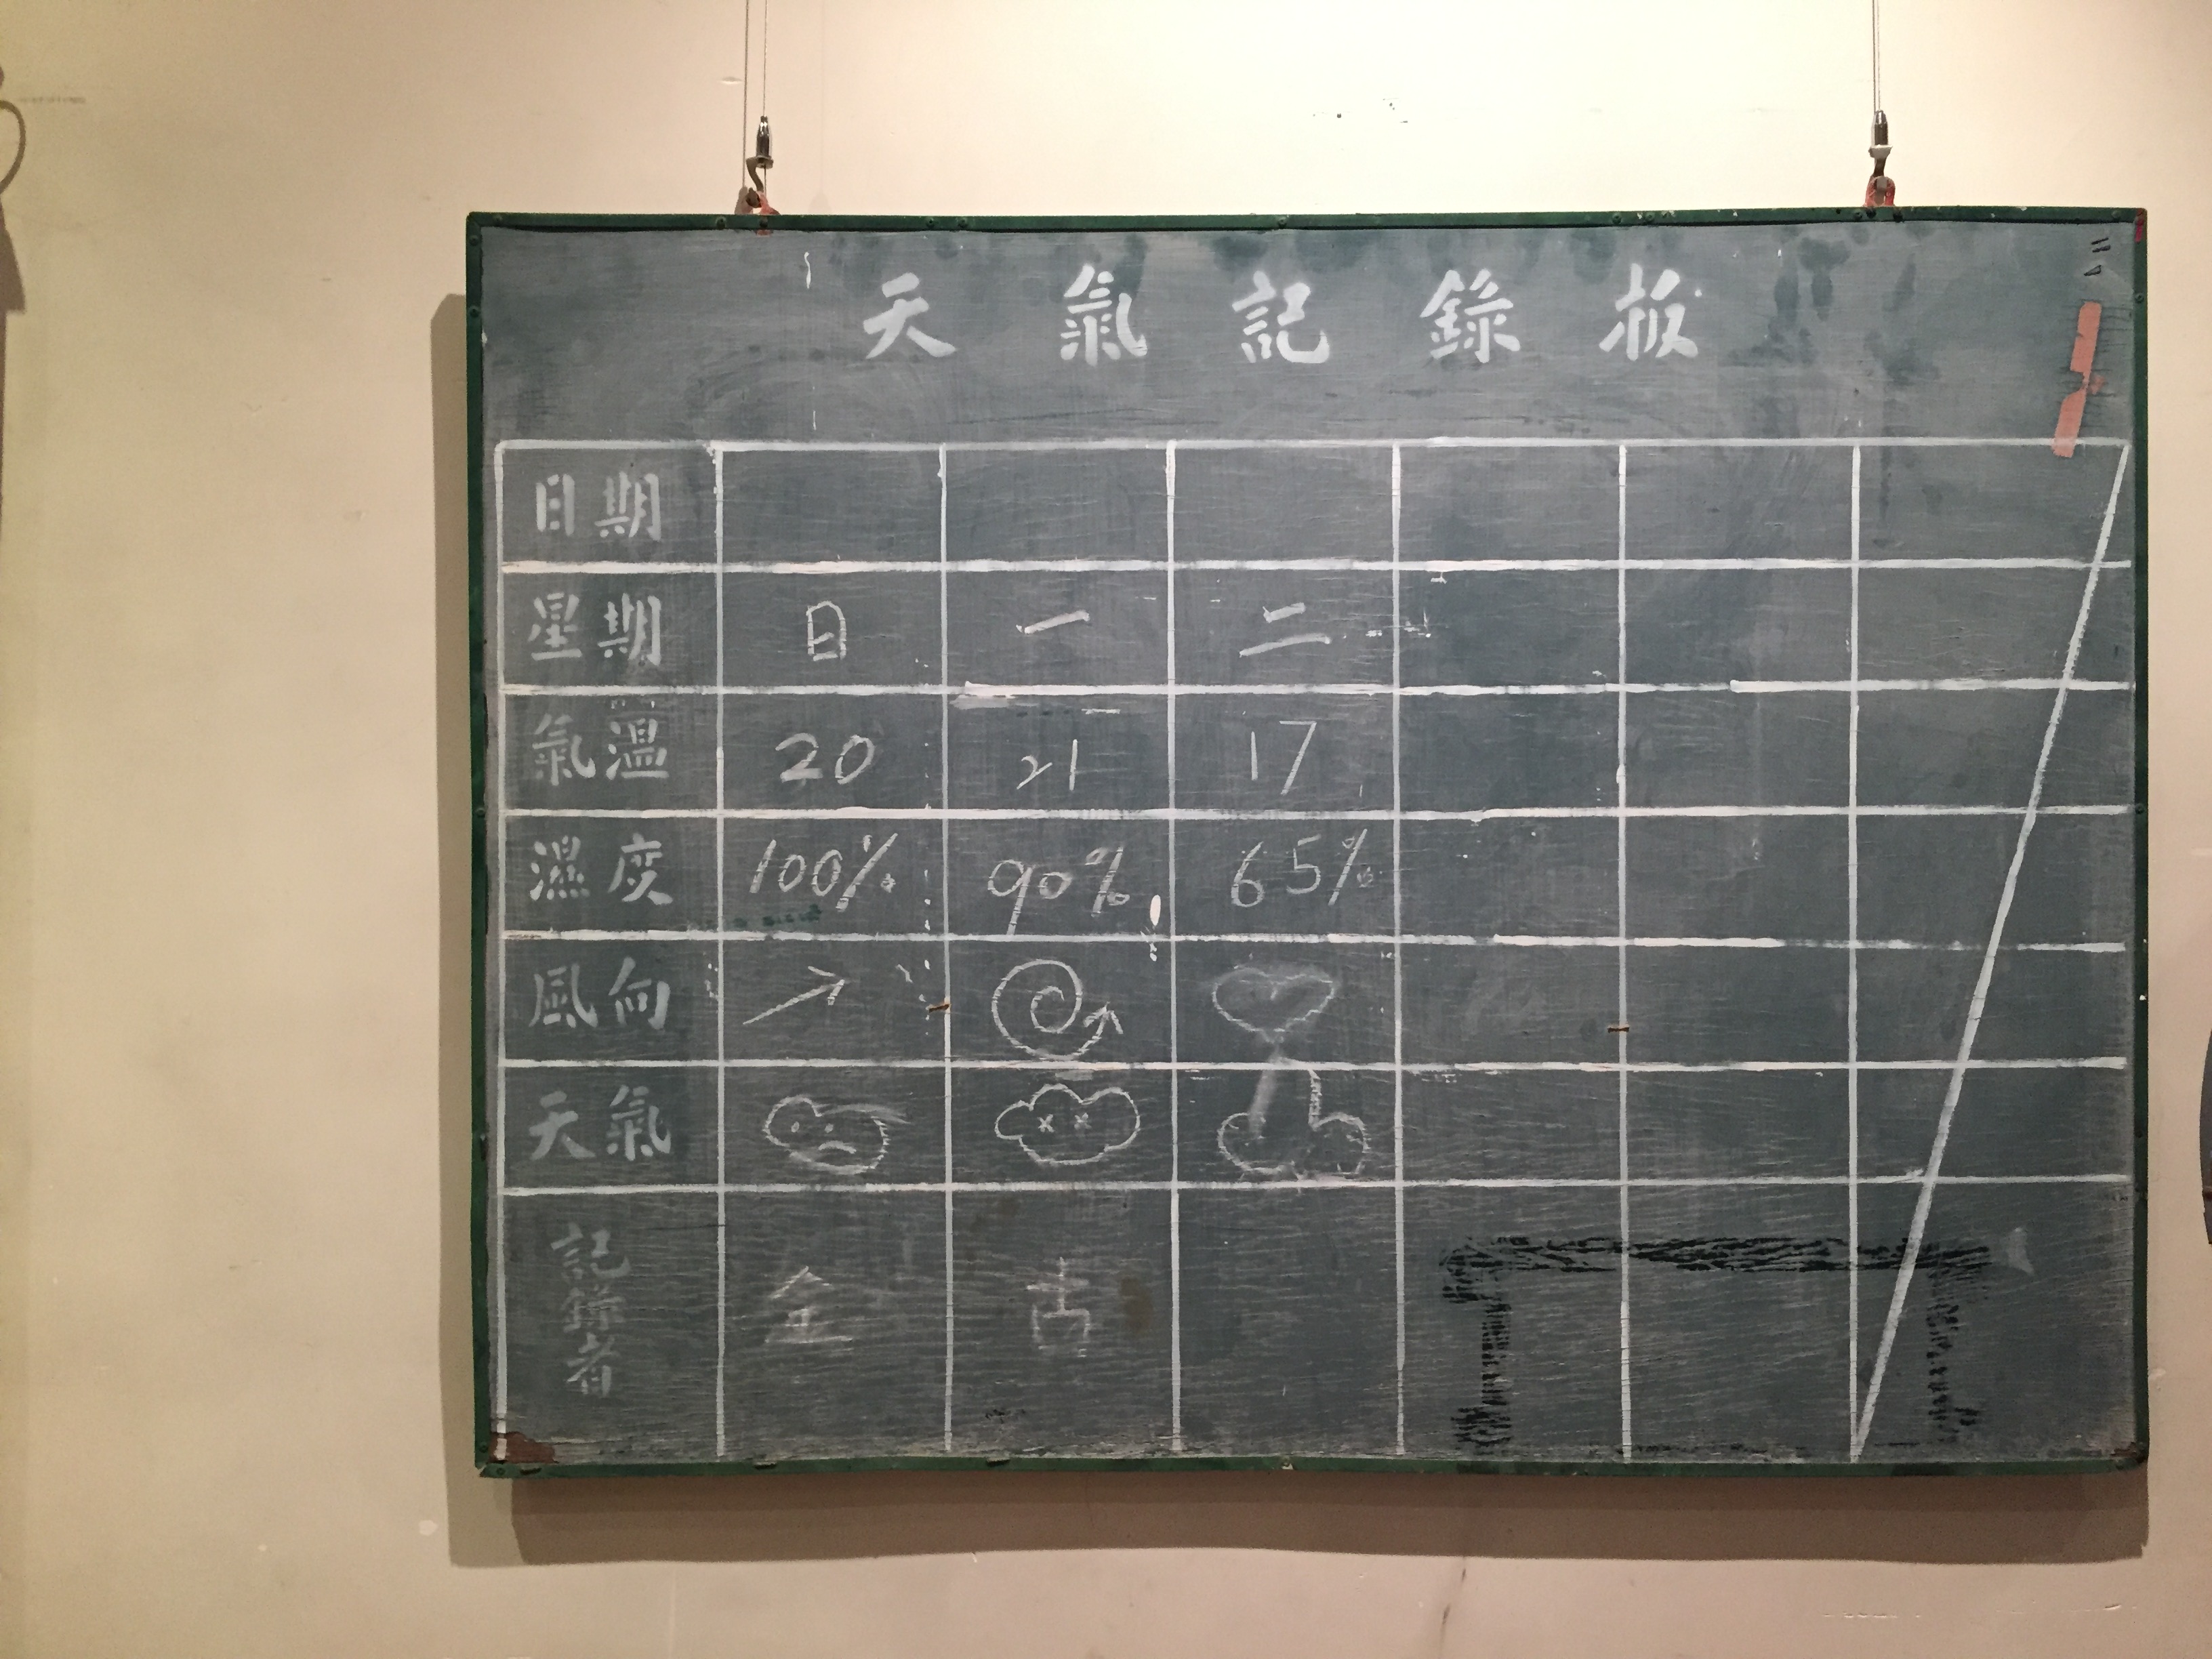 天氣記錄板
日期
星期 日 一 二
氣溫 20 21 17
濕度 100% 90% 65%
風向
天氣
記錄者 全 古